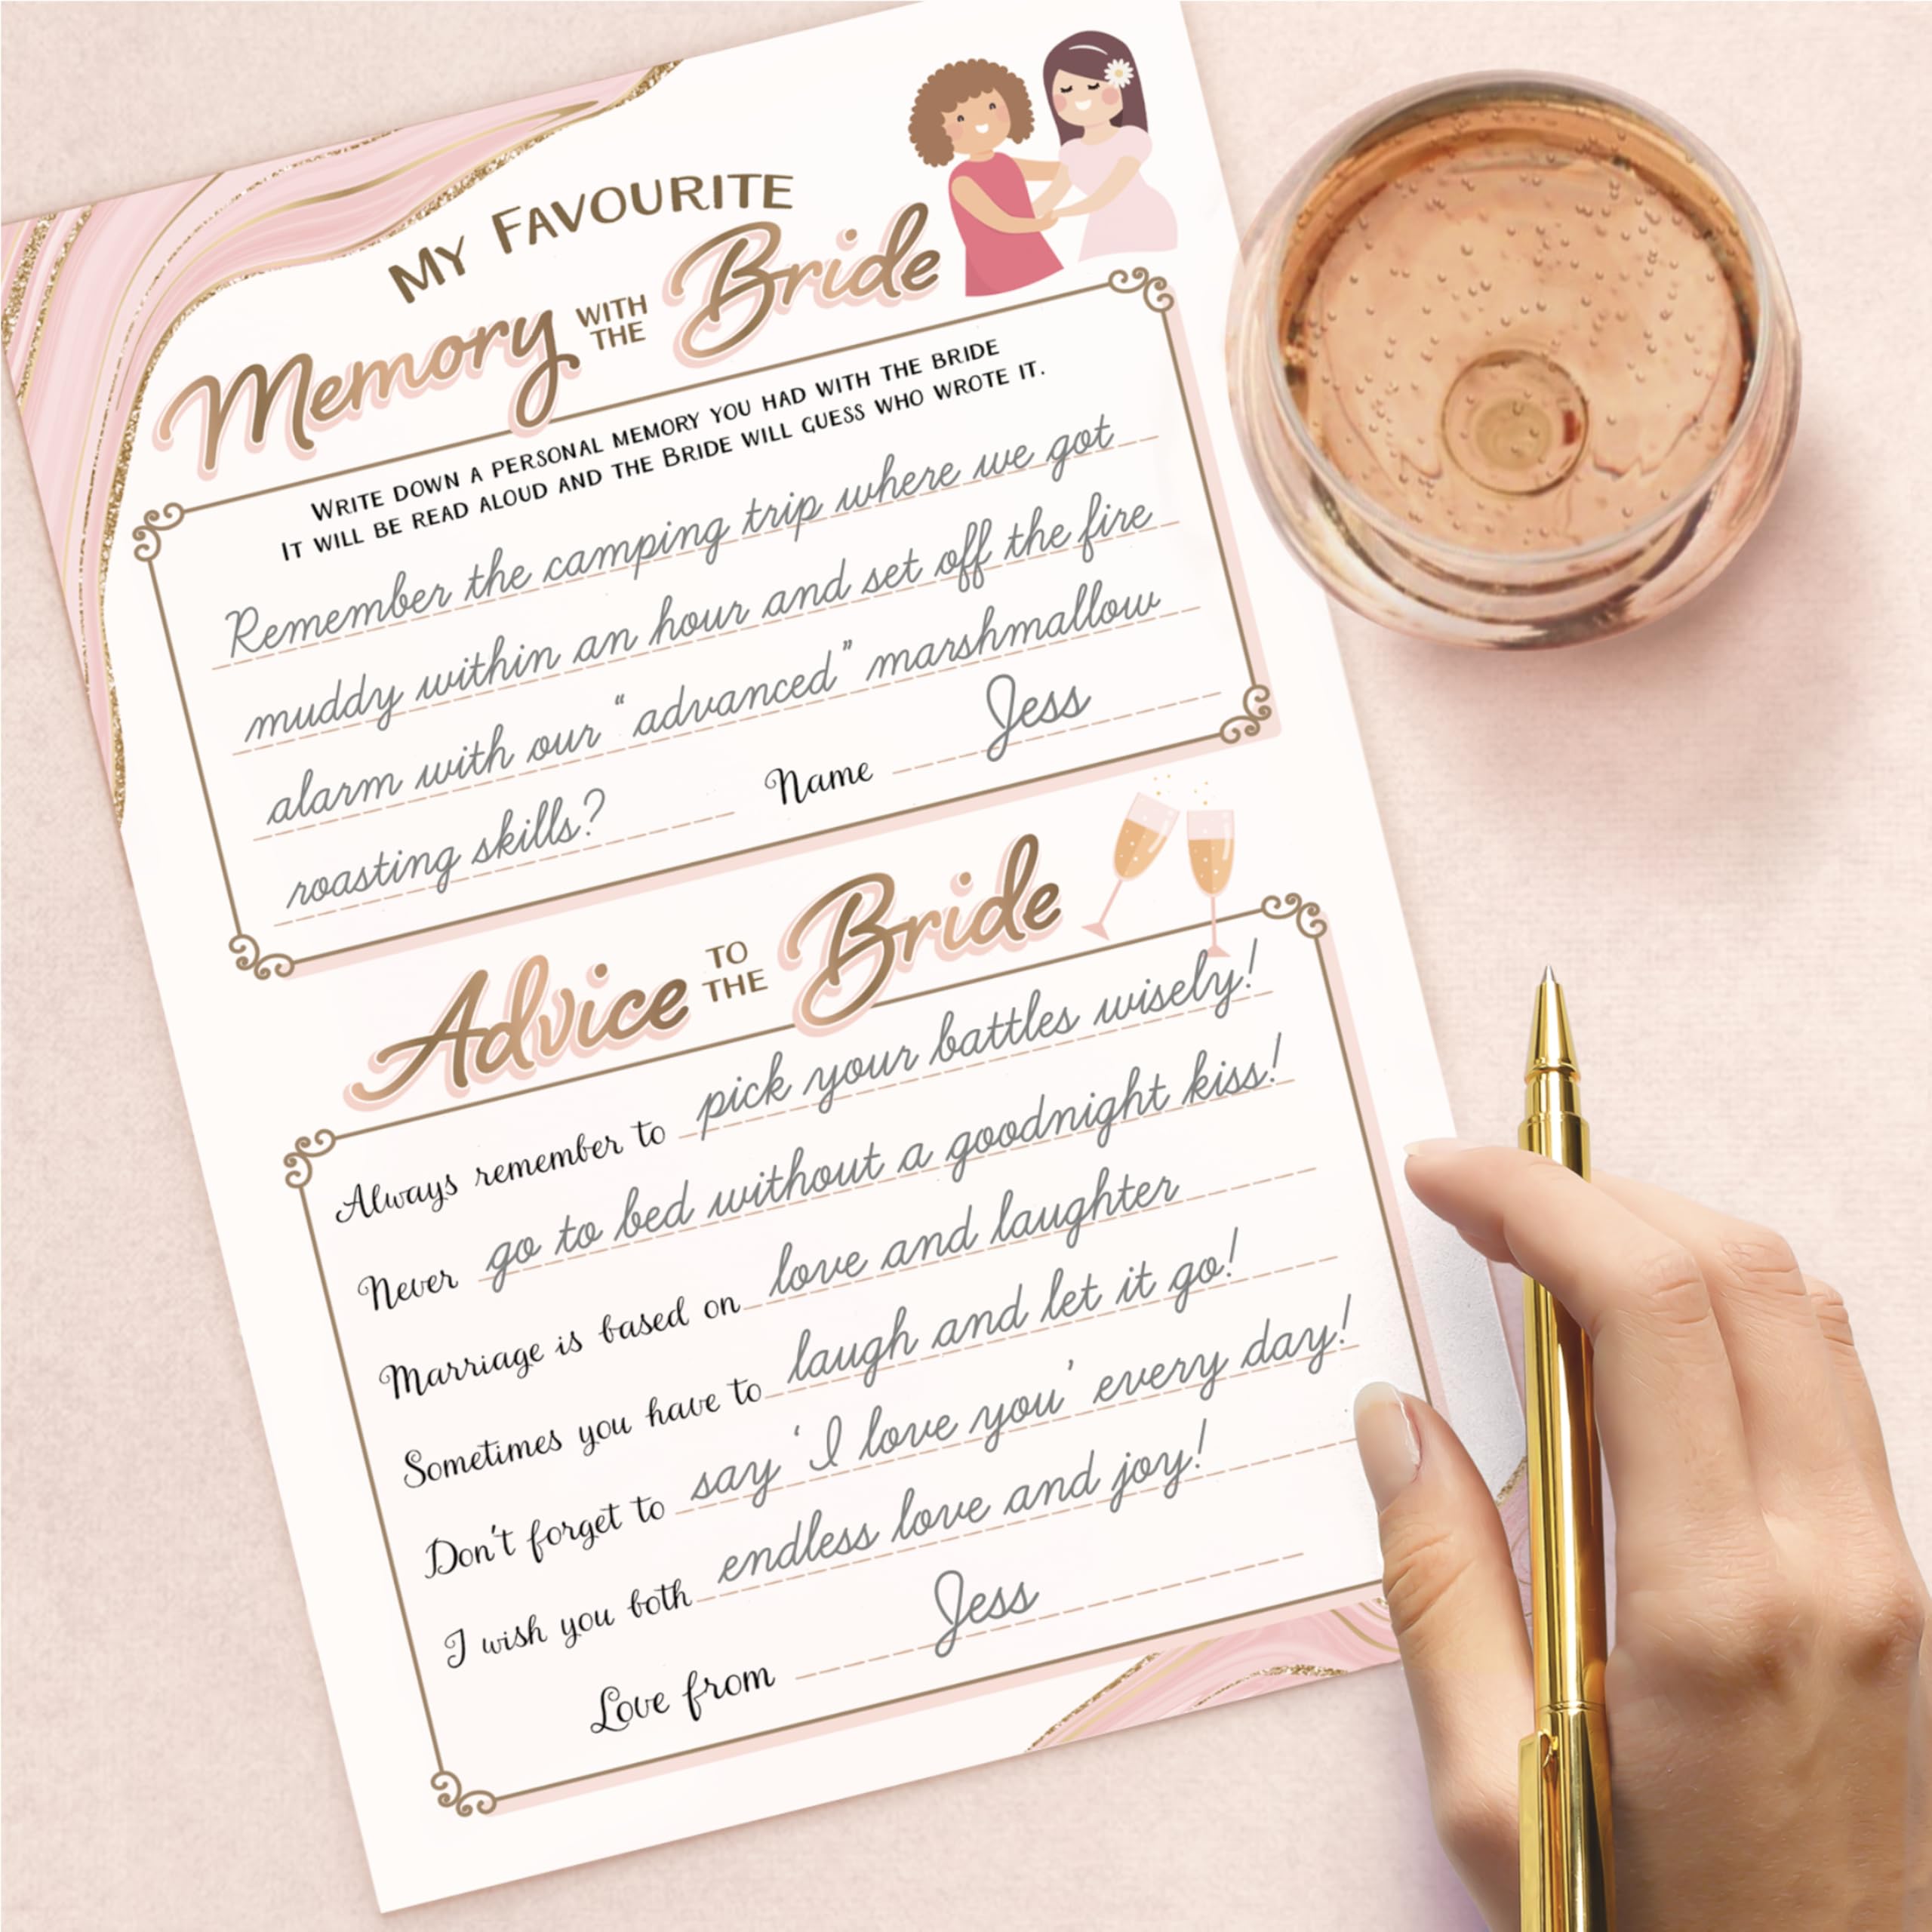 MY FAVOURITE
Memory WITH THE Bride
WRITE DOWN A PERSONAL MEMORY YOU HAD WITH THE BRIDE
IT WILL BE READ ALOUD AND THE BRIDE WILL GUESS WHO WROTE IT.
Remember the camping trip where we got
muddy within an hour and set off the fire
alarm with our “advanced” marshmallow
roasting skills?
Name Jess
Advice TO THE Bride
Always remember to pick your battles wisely!
Never go to bed without a goodnight kiss!
Marriage is based on love and laughter
Sometimes you have to laugh and let it go!
Don't forget to say ‘I love you’ every day!
I wish you both endless love and joy!
Love from Jess